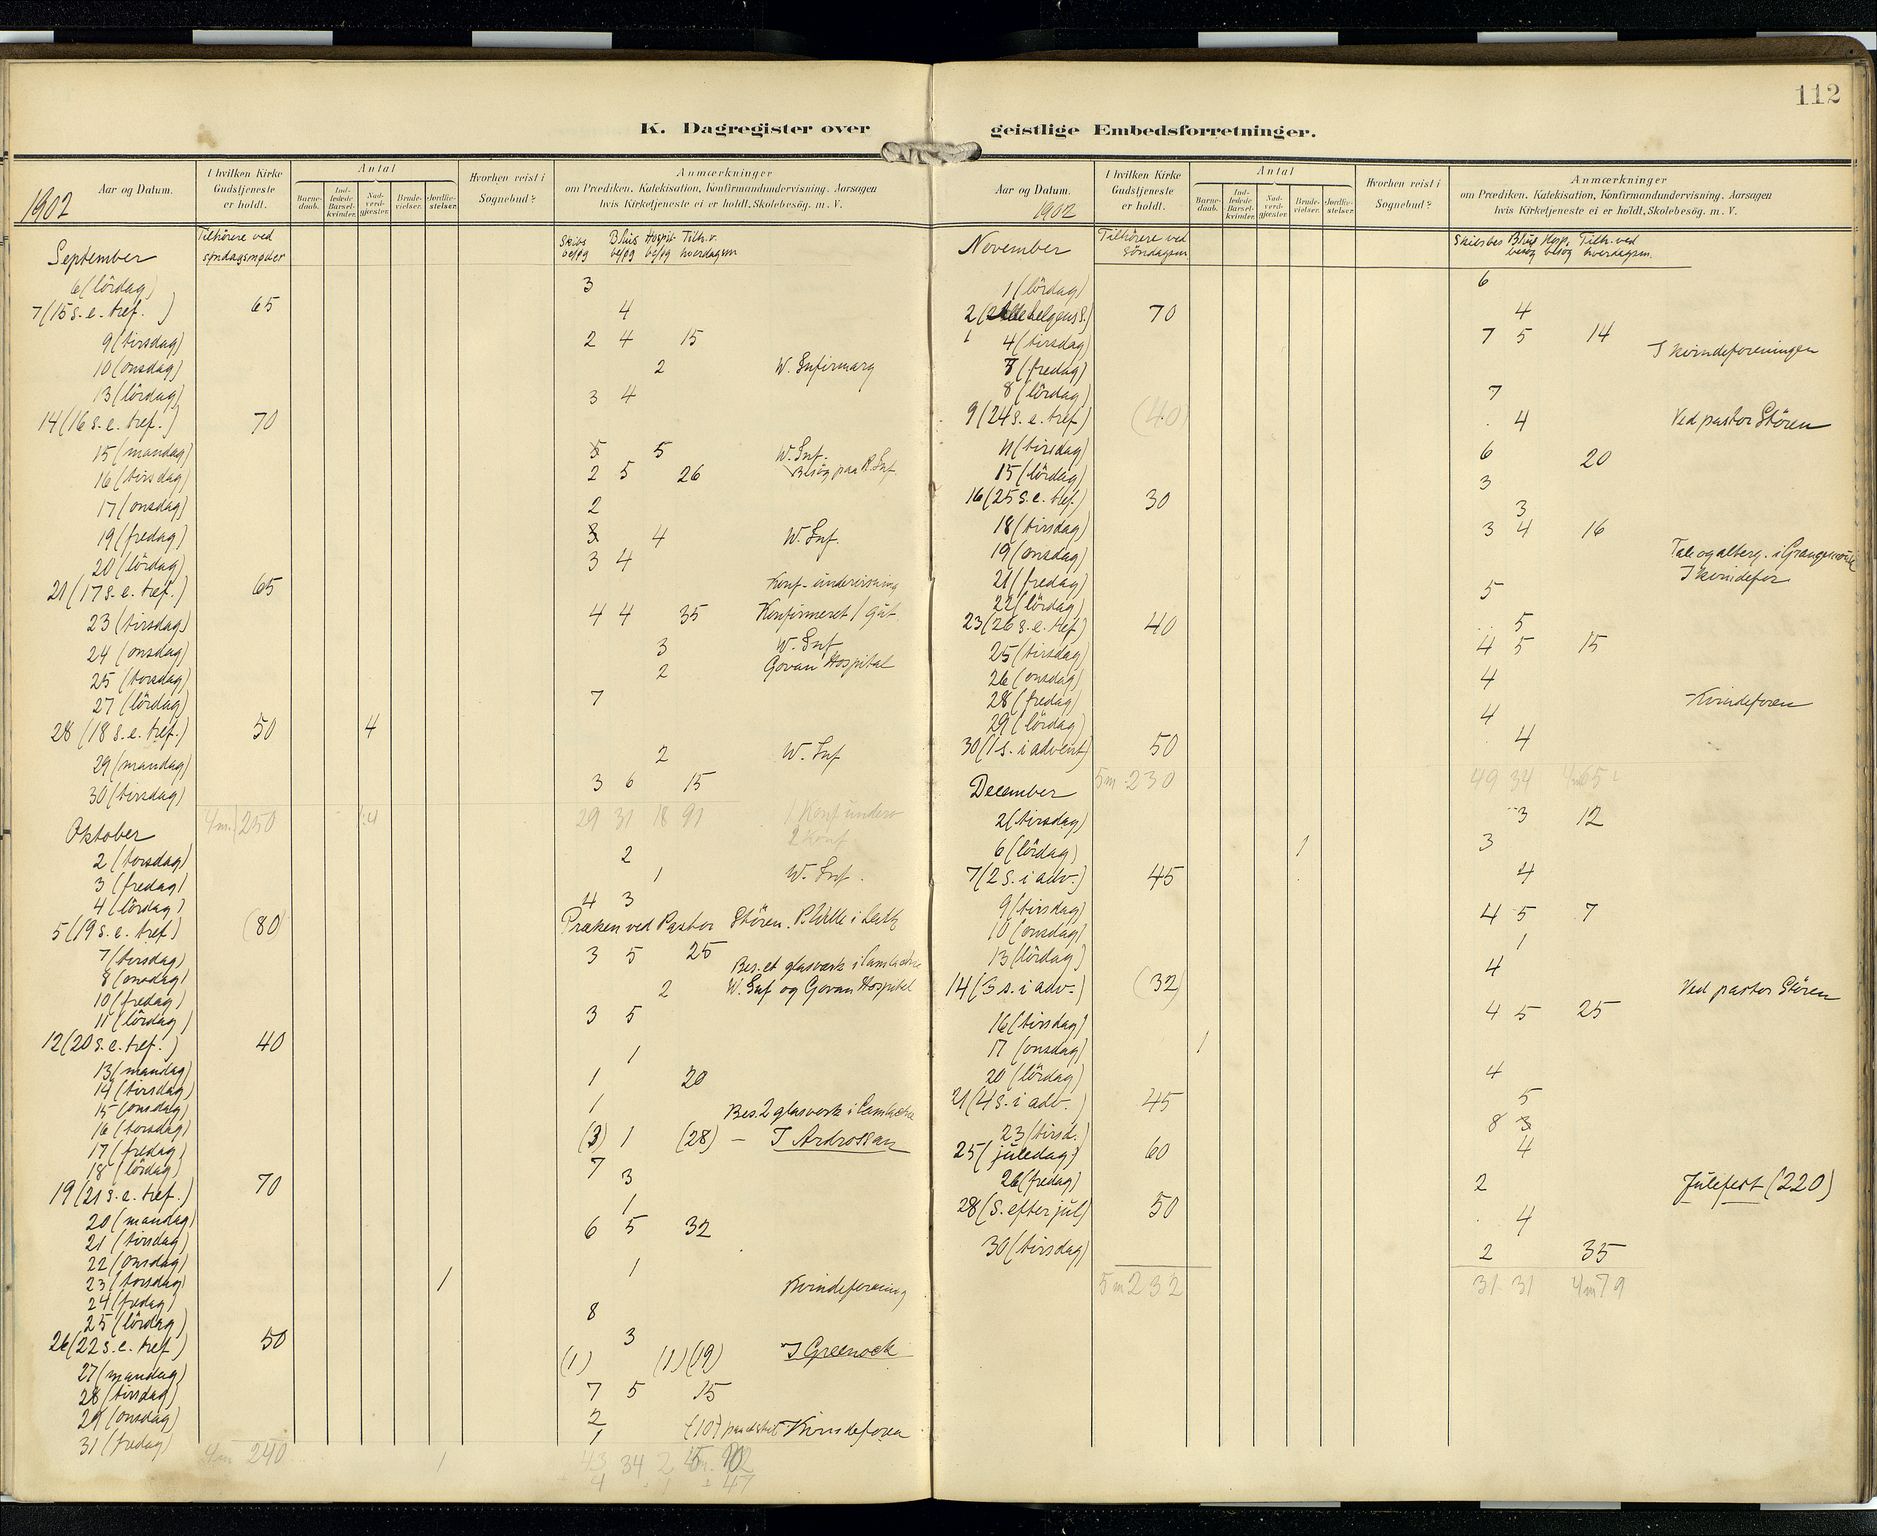 112
K. Dagregister over geistlige Embedsforretninger.
Aar og Datum.
I hvilken Kirke Gudstjeneste er holdt.
Antal
Barne-daab.
Ind-ledede Barsel-kvinder.
Nad-verd-gjester.
Brude-vielser.
Jordfæ-stelser.
Hvorhen reist i Sognebud?
Anmærkninger
om Prædiken, Katekisation, Konfirmandundervisning, Aarsagen
hvis Kirketjeneste ei er holdt, Skolebesøg, m. V.
1902
Tilhörere ved söndagsmøder
Skibs besøg Hospit. besøg Tilh. v. hverdagsm
September
6 (lördag) 3
7 (15 s. e. tref.) 65 4
9 (tirsdag) 2 4 15
10 (onsdag) 2 W. Infirmary
13 (lördag) 3 4
14 (16 s. e. tref.) 70
15 (mandag) 5 W. Inf.
16 (tirsdag) 2 5 26 Besög paa R. Inf.
17 (onsdag) 2
19 (fredag) 4 W. Inf.
20 (lördag) 3 4
21 (17 s. e. tref.) 65 Konf-undervisning
23 (tirsdag) 4 4 35 Konfirmeret 1 gut.
24 (onsdag) 3 W. Inf
25 (torsdag) 2 Govan Hospital
27 (lördag) 7
28 (18 s. e. tref.) 50 4
29 (mandag) 2 W. Inf
30 (tirsdag) 3 6 15
4 m. 250 4 29 31 18 91 1 Konf underv
2 Konf
Oktober
2 (torsdag) 2
3 (fredag) 1 W. Inf.
4 (lördag) 4 3
5 (19 s. e. tref) (80) Præken ved Pastor Stören. P. Wille i Leith
7 (tirsdag) 3 5 25
8 (onsdag) Bes. et glasværk i Camlachie
10 (fredag) 2 W. Inf og Govan Hospital
11 (lördag) 3 5
12 (20 s. e. tref.) 40 1
13 (mandag)
14 (tirsdag) 1 20
15 (onsdag) 1 Bes. 2 glasværk i Camlachie
16 (torsdag) (3) 1 (28) – I Ardrossan
17 (fredag) 7
18 (lördag) 3
19 (21 s. e. tref.) 70 1
20 (mandag)
21 (tirsdag) 6 5 32
22 (onsdag) 1
23 (torsdag) 1
24 (fredag) Kvindeforening
25 (lördag) 8
26 (22 s. e. tref) 50 3
27 (mandag) (1) (1) (19) I Greenock
28 (tirsdag) 7 5 15
29 (onsdag) 2
31 (fredag) 1 (10) Kvindeforen
4 m 240 1 43 34 2
4 1 47
Aar og Datum.
1902
I hvilken Kirke Gudstjeneste er holdt.
Antal
Barne-daab.
Ind-ledede Barsel-kvinder.
Nad-verd-gjester.
Brude-vielser.
Jordfæ-stelser.
Hvorhen reist i Sognebud?
Anmærkninger
om Prædiken, Katekisation, Konfirmandundervisning, Aarsagen
hvis Kirketjeneste ei er holdt, Skolebesøg, m. V.
November
Tilhörere ved Söndagsm
Skibsbes besög Hosp. besög Tilh. ved hverdagsm.
1 (lördag) 6
2 (Allehelgens s.) 70 4
4 (tirsdag) 7 5 14
7 (fredag) I kvindeforeningen
8 (lördag) 7
9 (24 s. e. tref) (40) 4 Ved pastor Stören
11 (tirsdag) 6 20
15 (lördag) 3
16 (25 s. e. tref.) 30 3
18 (tirsdag) 3 4 16
19 (onsdag) Tale i Grangemouth
21 (fredag) I kvindefor
22 (lördag) 5
23 (26 s. e. tref) 40 5
25 (tirsdag) 4 5 15
26 (onsdag) 4
28 (fredag) Kvindeforen
29 (lördag) 4
30 (1 s. i advent) 50 4
5 m. 230 49 34 4m 65
December
2 (tirsdag) 3 12
6 (lördag) 1 3
7 (2 s. i adv.) 45 4
9 (tirsdag) 4 5 7
10 (onsdag) 1
13 (lördag) 4
14 (3 s. i adv.) (32) Ved pastor Stören
16 (tirsdag) 4 5 25
17 (onsdag) 1
20 (lördag) 4
21 (4 s. i adv.) 45 5
23 (tirsd.) 8 3
25 (juledag) 60 4
26 (fredag) 2 Julefest (220)
28 (s. efter jul) 50 4
30 (tirsdag) 2 35
5 m 232 31 31 4m 79